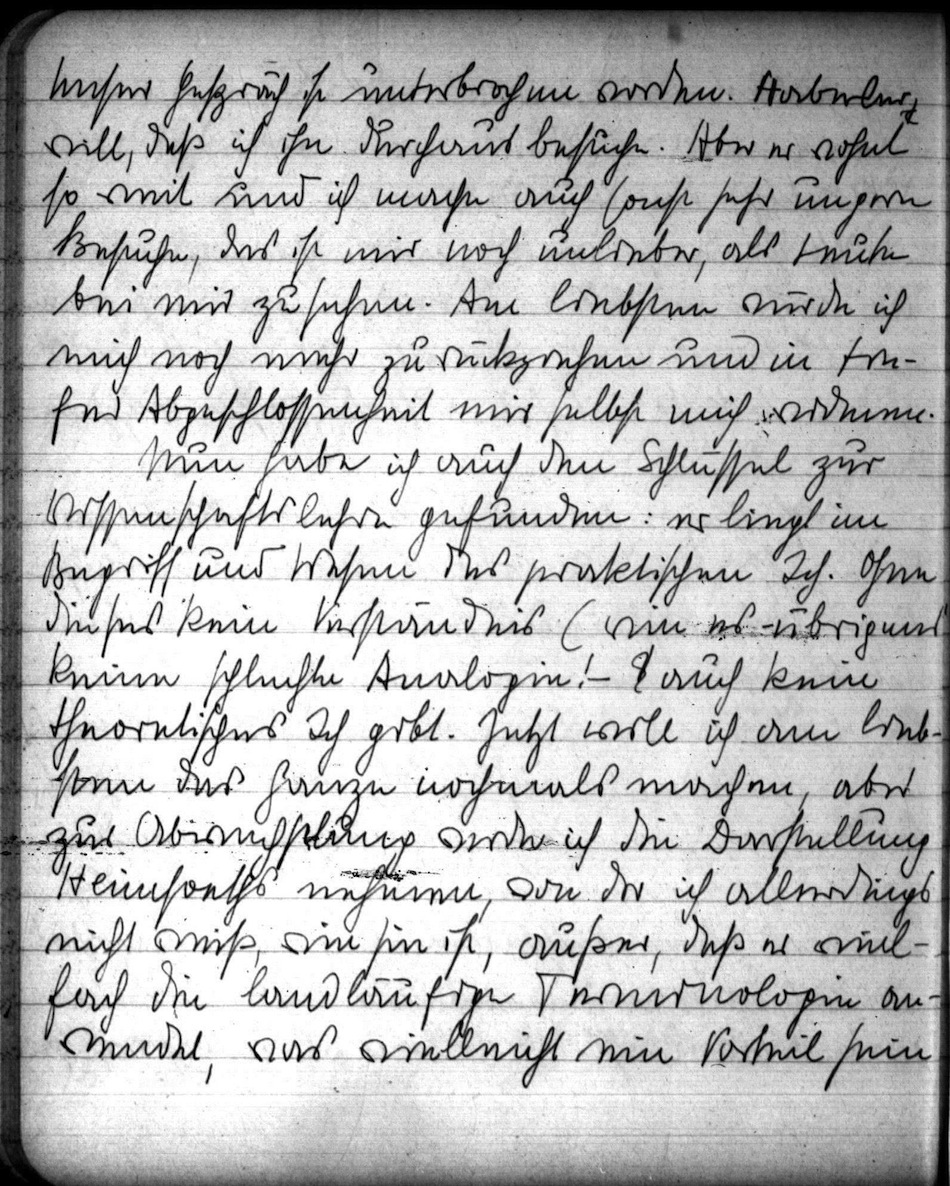 Unser Gespräch ist unterbrochen worden. Haberler
will, daß ich ihn durchaus besuche. Aber er wohnt
so weit und ich mache auch sonst sehr ungern
Besuche, das ist mir noch unlieber, als Leute
bei mir zu sehen. Am liebsten würde ich
mich noch mehr zurückziehen und in tie-
fer Abgeschlossenheit mir selbst mich widmen.
Nun habe ich auch den Schlüssel zur
Wissenschaftslehre gefunden: er liegt im
Begriff und Wesen des praktischen Ich. Ohne
dieses kein Verständnis (wie es übrigens
keine schlechte Analogie! – auch kein
theoretisches Ich gibt. Jetzt will ich am lieb-
sten das Ganze nochmals machen, aber
zur Abwechslung werde ich die Darstellung
Heimsoeths nehmen, von der ich allerdings
nicht weiß, wie sie ist, außer, daß er viel-
fach die landläufige Terminologie an-
wendet, was vielleicht ein Vorteil sein